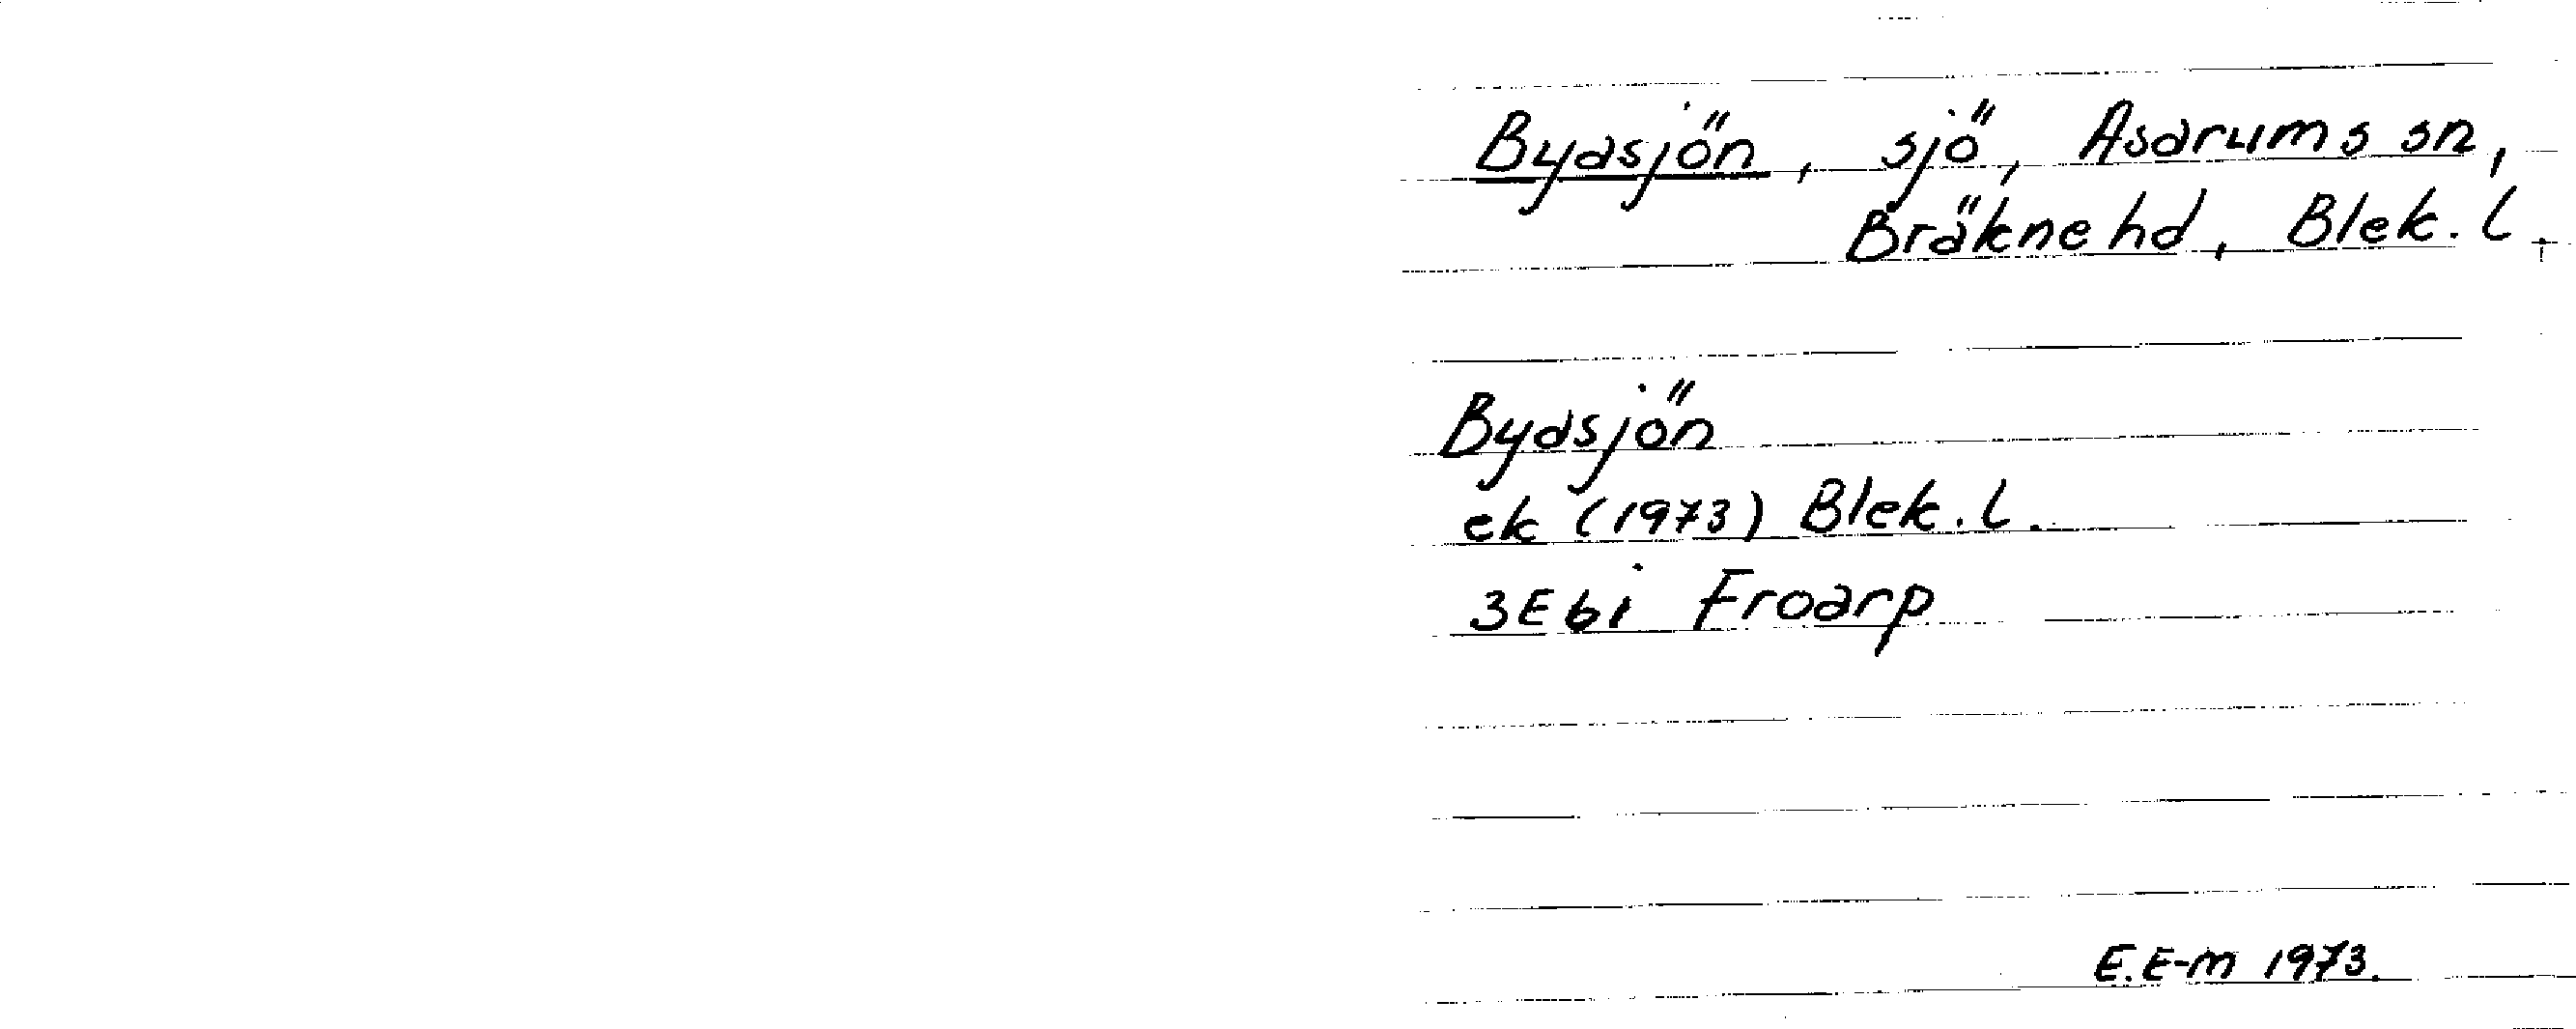 Byasjön, sjö, Asarums sn,
Bräkne hd, Blek. l.
Byasjön
ek (1973) Blek. l.
3E6i Froarp
E.E-m 1973.